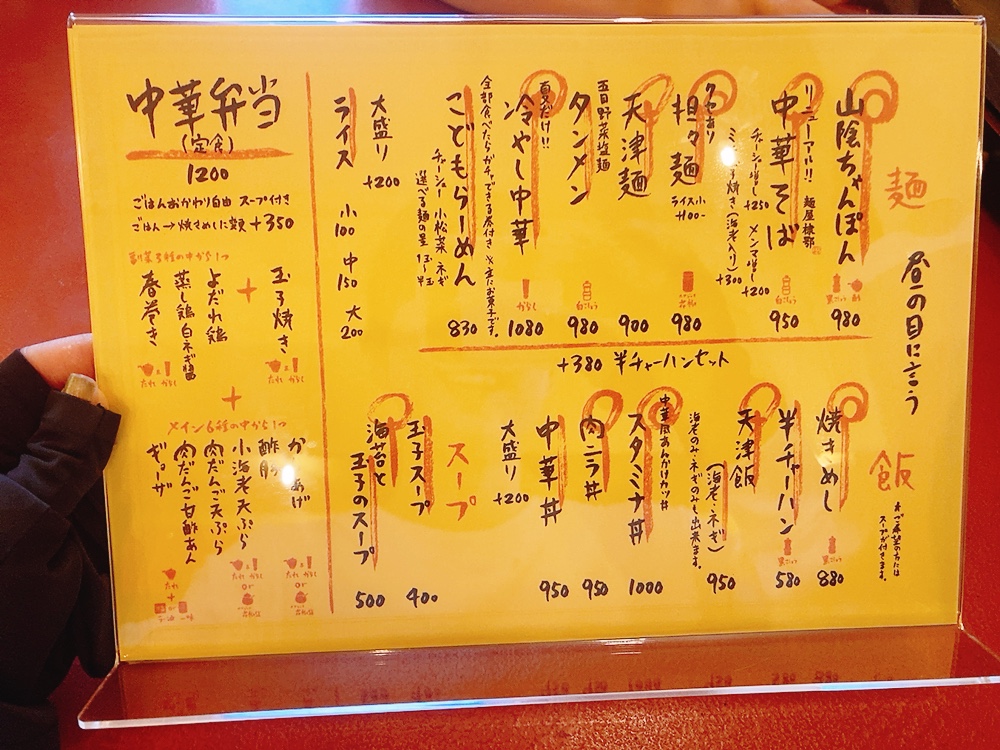 昼の目に言う
麺
山陰ちゃんぽん 980
リニューアル!! 麺屋棟鄂
中華そば 950
チャーシュー増し +250
メンマ増し +200
玉子焼き(海老入り) +300
クセ有り
担々麺 980
ライス小 +100-
天津麺 900
五目野菜塩麺
タンメン 980
夏だけ!!
冷やし中華 1080
からし
全部食べたらガチャできる券付き ※玉お菓子です。
こどもらーめん 830
チャーシュー 小松菜 ネギ
選べる麺の量 1玉〜半玉
大盛り +200
ライス 小 100 中 150 大 200
+380 半チャーハンセット
飯
スープが付きます。
焼きめし 880
黒こしょう
半チャーハン 580
黒こしょう
天津飯 950
(海老、ネギ)
海老のみ、ネギのみも出来ます。
中華風あんかけカツ丼
スタミナ丼 1000
肉ニラ丼 950
中華丼 950
大盛り +200
スープ
玉子スープ 400
海苔と玉子のスープ 500
中華弁当
(定食)
1200
ごはんおかわり自由 スープ付き
ごはん→焼きめしに変更 +350
玉子焼き
たれ からし
+
副菜3種の中から1つ
よだれ鶏
蒸し鶏白ネギ醤
春巻き
たれ からし
+
メイン6種の中から1つ
からあげ
酢豚
小海老天ぷら
肉だんご天ぷら
肉だんご甘酢あん
ギョーザ
たれ からし
or
たれ からし
or
たれ
+
ラー油 or 一味